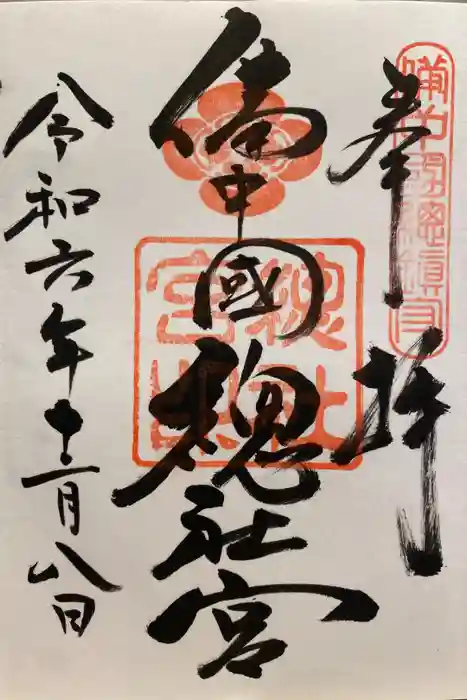 奉拝
備中國総鎮守
備中國總社宮
總社宮印
令和六年十二月八日